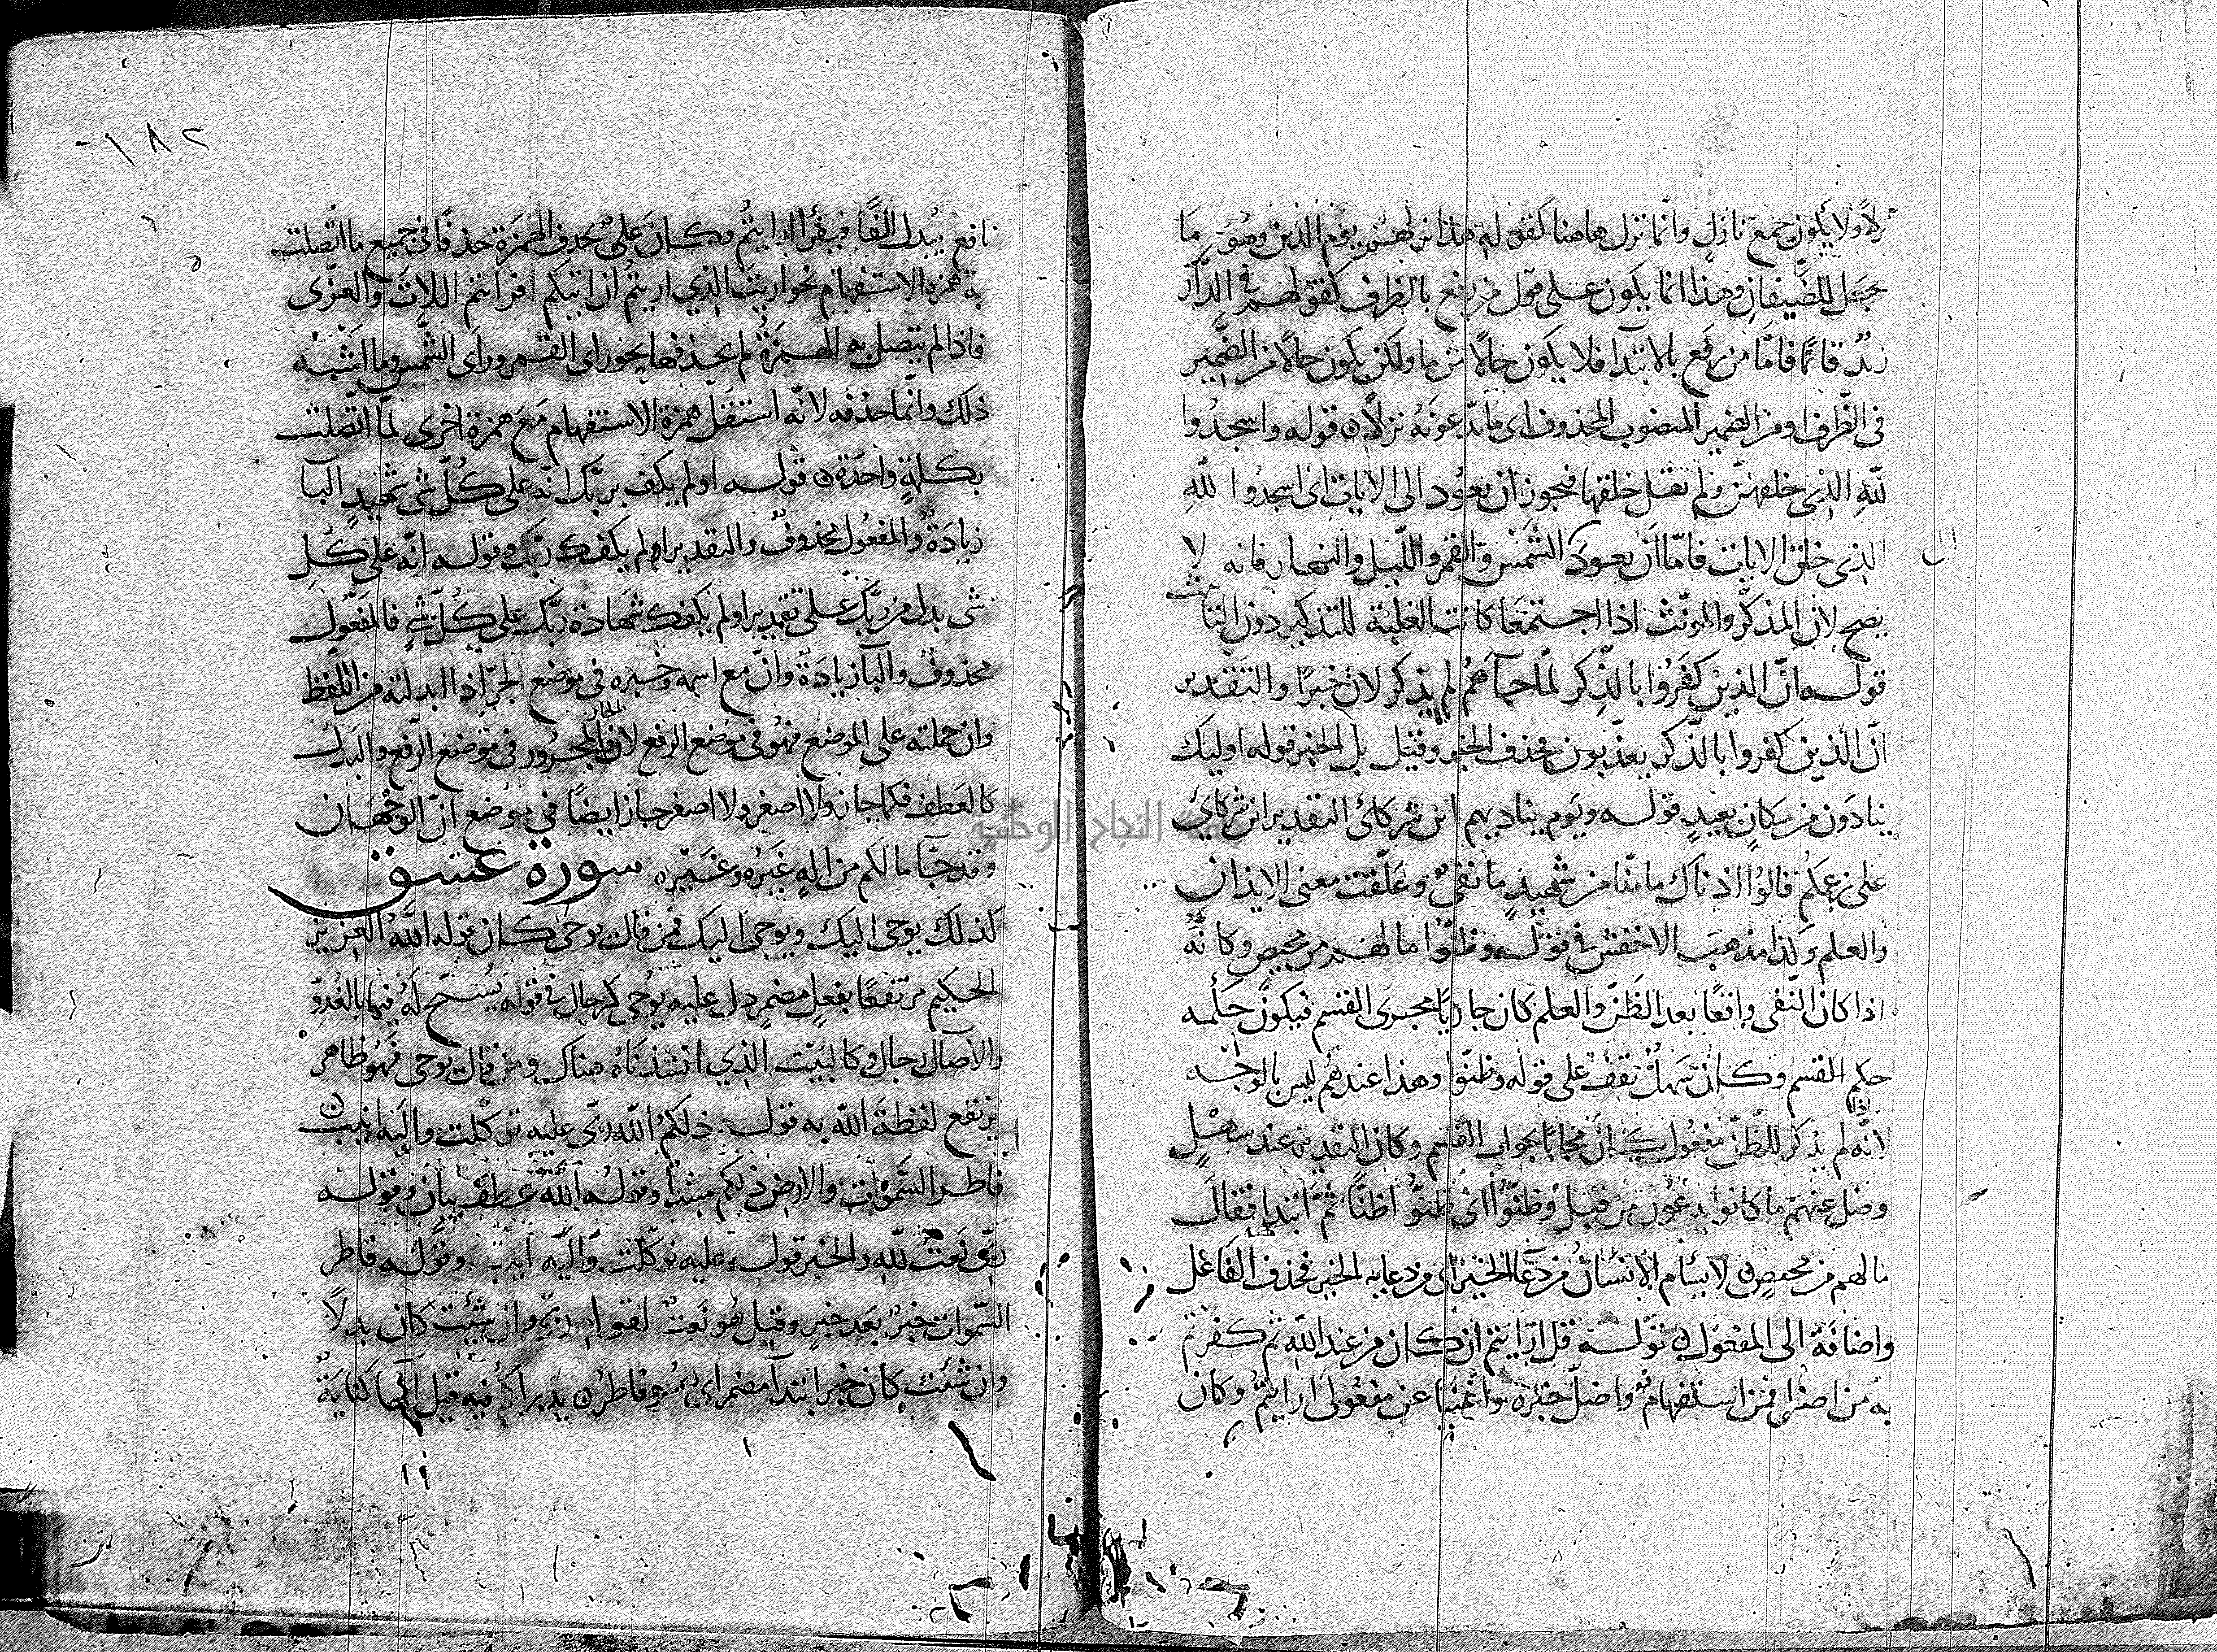 نزلا ولا يكون جمع نازل وانما نزل هاهنا كقوله هذا نزلهم يوم الدين وهو ما
يجعل للضيفان وهذا انما يكون على قول من رفع بالظرف كقولهم في الدار
زيد قائما فاما من رفع بالابتدا فلا يكون حالا من ما ولكن يكون حالا من الضمير
في الظرف او من الضمير المنصوب المحذوف اي ما تدعونه نزلا قوله واسجدوا
لله الذي خلقهن ولم تقل خلقها فيجوز ان يعود الى الايات اي اسجدوا لله
الذي خلق الايات فاما ان يعود الشمس والقمر والليل والنهار فانه لا
يصح لان المذكر والمونث اذا اجتمعا كانت الغلبة للتذكير دون التأنيث
قوله ان الذين كفروا بالذكر لما جآهم لم يذكر لان خبرا والتقدير
ان الذين كفروا بالذكر يعذبون فحذف الخبر وقيل بل الخبر قوله اوليك
ينادون من مكان بعيد قوله ويوم يناديهم اين شركائي التقدير اين شركائي
على زعمكم قالوا اذناك ما منا من شهيد ما نفي وعلقت معنى الايذان
والعلم وكذا مذهب الاخفش في قوله وظنوا ما لهم من محيص وكانه
اذا كان النفي واقعا بعد الظن والعلم كان جاريا مجرى القسم فيكون حكمه
حكم القسم وكان سهل يقف على قوله وظنوا وهذا عندهم ليس بالوجه
لانه لم يذكر للظن مفعول كان مجابا بجواب القسم وكان التقدير عند سهل
وضل عنهم ما كانوا يدعون من قبل وظنوا اي ظنوا ظنا ثم ابتدا فقال
ما لهم من محيص لا يسام الانسان من دعا الخير اي من دعايه الخير فحذف الفاعل
واضافة الى المفعول قوله قل ارايتم ان كان من عند الله ثم كفرتم
به من اضل فمن استفهام واضل خبره واغنيا عن مفعولي ارايتم وكان
١٨٢
نافع يبدل الفا فيقرا ارايتم وكان علي يحذف الهمزة حذفا في جميع ما اتصلت
به همزة الاستفهام نحو اريت الذي اريتم ان اتيكم افرايتم اللات والعزى
فاذا لم يتصل به الهمزة لم يحذفها نحو راى القمر وراى الشمس وما اشبه
ذلك وانما حذفه لانه استثقل همزة الاستفهام مع همزة اخرى لما اتصلت
بكلمة واحدة قوله اولم يكف بربك انه على كل شي شهيد البا
زيادة والمفعول محذوف والتقدير اولم يكفك ربك وقوله انه على كل
شي بدل من ربك على تقدير اولم يكفك شهادة ربك على كل شي فالمفعول
محذوف والبا زيادة وان مع اسمه وخبره في موضع الجر اذا ابدلته من اللفظ
وان حملته على الموضع فهو في موضع الرفع لان الجار والمجرور في موضع الرفع والبدل
كالعطف فكما جاز ولا اصغر ولا اصغر جاز ايضا في موضع ان الوجهان
وقد جا ما لكم من اله غيره وغيره سورة عسق
كذلك يوحي اليك ويوحى اليك فمن قال يوحى كان قوله الله العزيز
الحكيم مرتفعا بفعل مضمر دل عليه يوحى كرجال في قوله يسبح له فيها بالغدو
والآصال رجال وكالبيت الذي انشدناه هناك ومن قال يوحي فهو ظاهر
يرتفع لفظة الله به قوله ذلكم الله ربي عليه توكلت واليه انيب
فاطر السموات والارض ذلكم مبتدا وقوله الله عطف بيان وقوله
ربي نعت لله والخبر قوله عليه توكلت واليه انيب وقوله فاطر
السموات خبر بعد خبر وقيل هو نعت لقوله ربي وان شئت كان بدلا
وان شئت كان خبر ابتدآ مضمر اي هو فاطر يذيراكم فيه قيل الها كناية